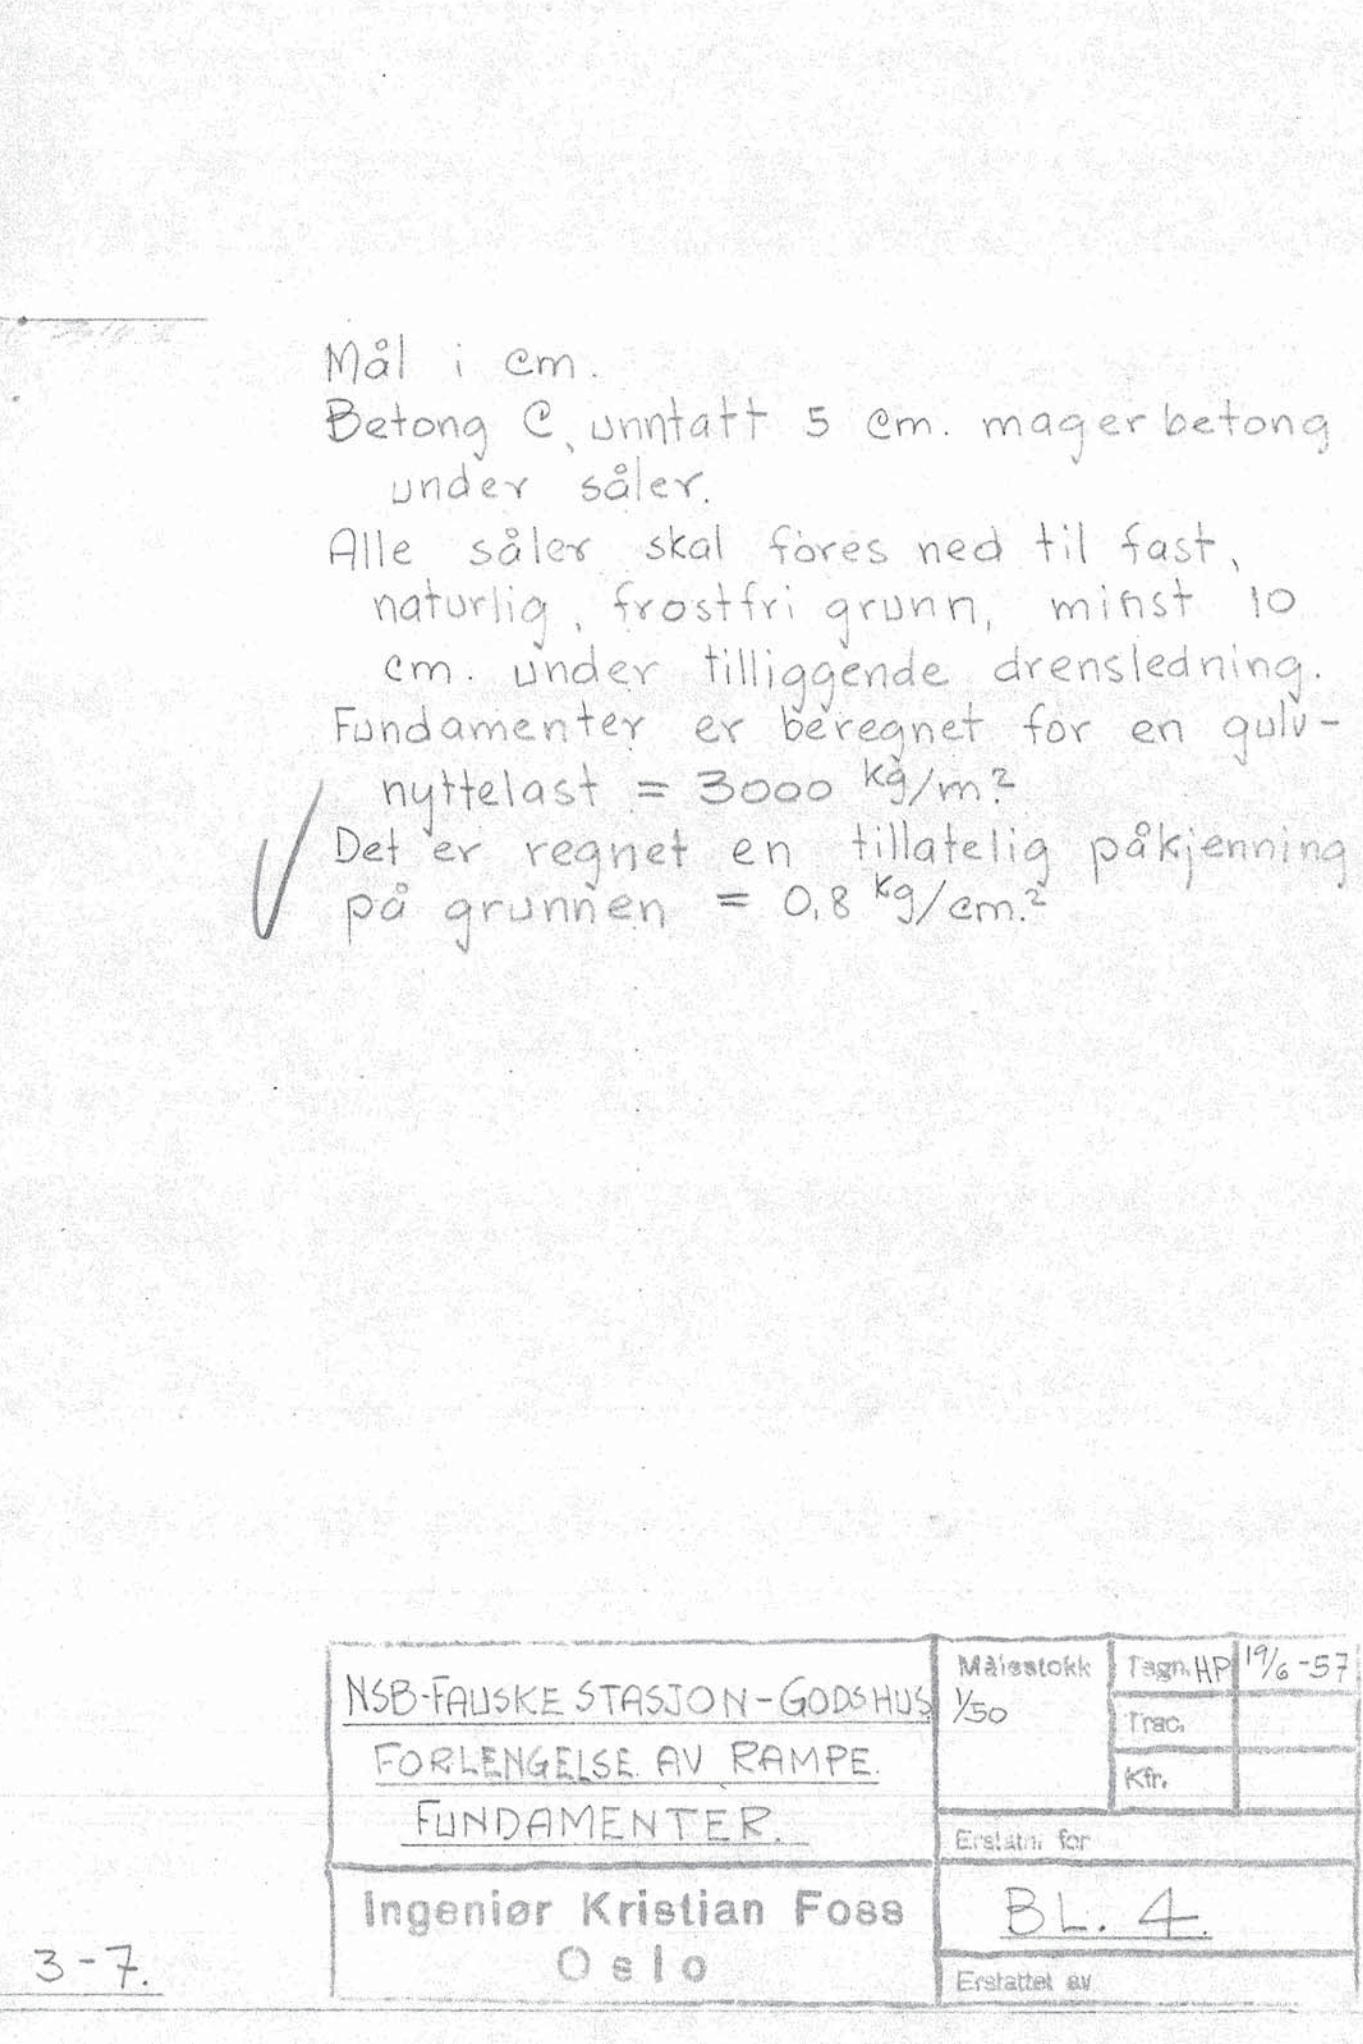 Mål i cm.
Betong C, unntatt 5 cm. magerbetong
under såler.
Alle såler skal føres ned til fast,
naturlig, frostfri grunn, minst 10
cm. under tilliggende drensledning.
Fundamenter er beregnet for en gulv-
nyttelast = 3000 kg/m²
Det er regnet en tillatelig påkjenning
på grunnen = 0,8 kg/cm.²
NSB-FAUSKE STASJON-GODSHUS
FORLENGELSE AV RAMPE.
FUNDAMENTER.
Ingeniør Kristian Foss
Oslo
Målestokk
1/50
Tegn. HP 19/6-57
Trac.
Kfr.
Erstatn. for
BL. 4.
Erstattet av
3-7.